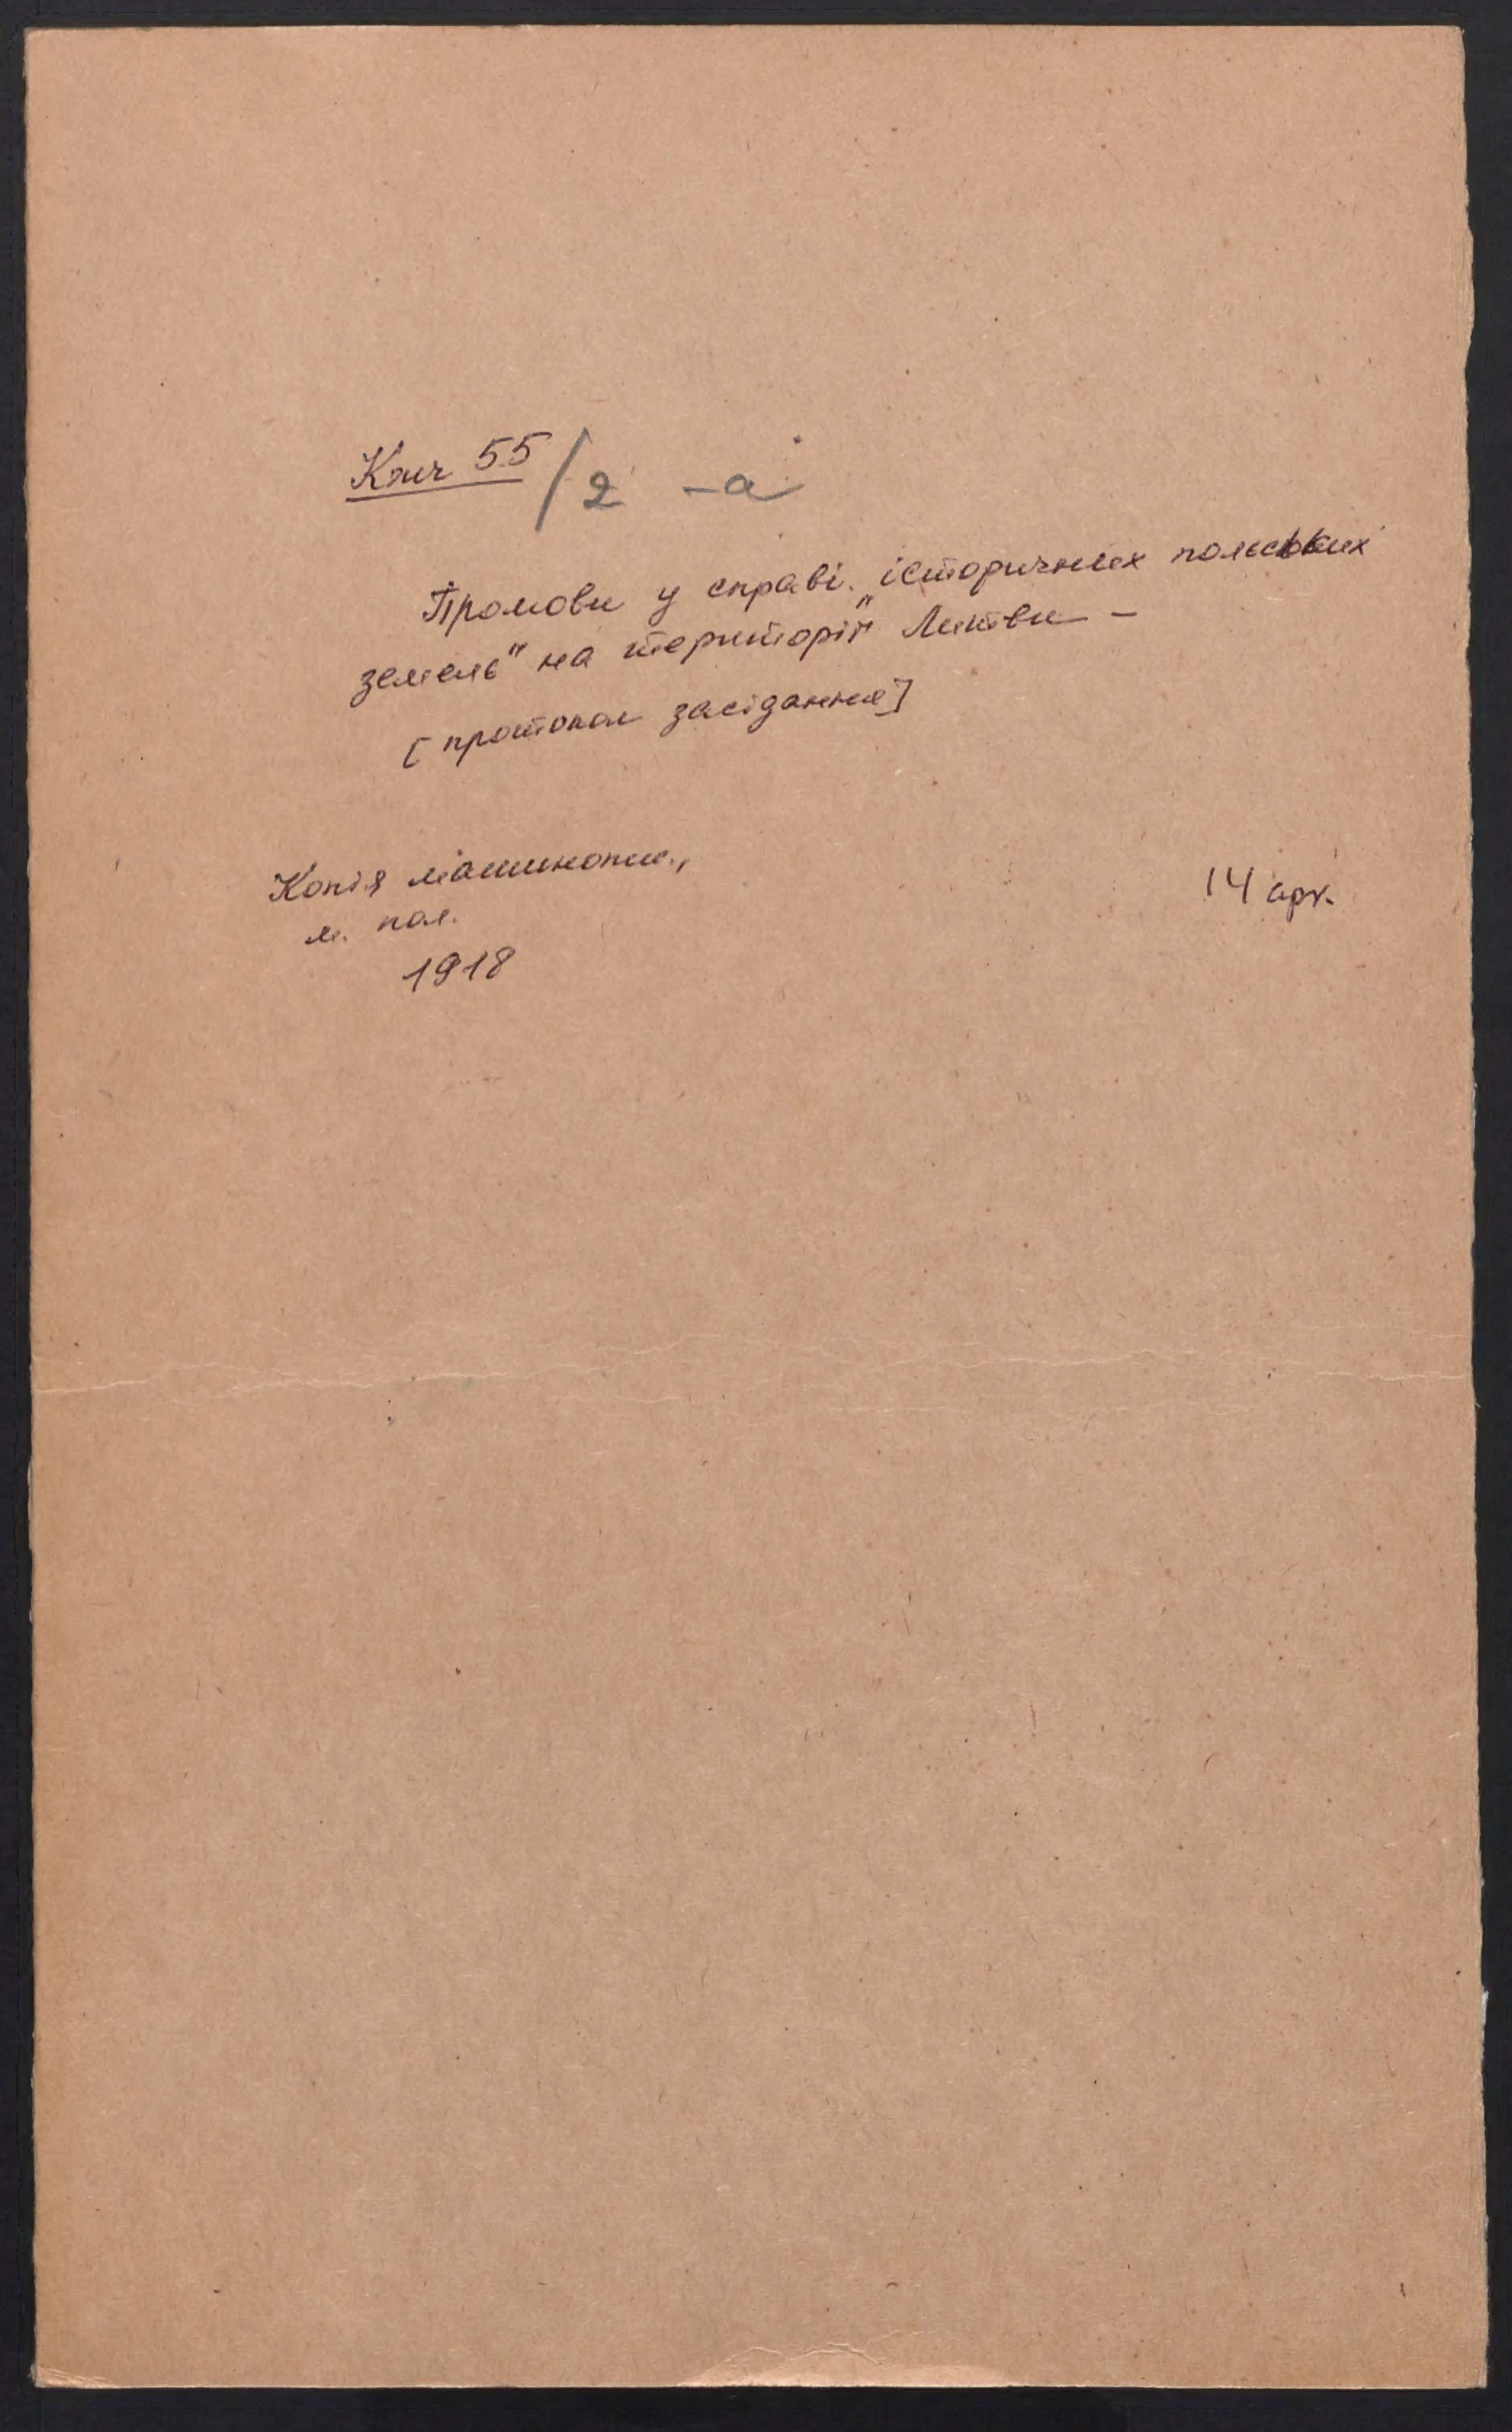 Кжч 55/2 -а
Промови у справі „історичних польських
земель" на території Литви –
[протокол засідання]
Копія машинопис.,
м. пол.
1918
14 арк.